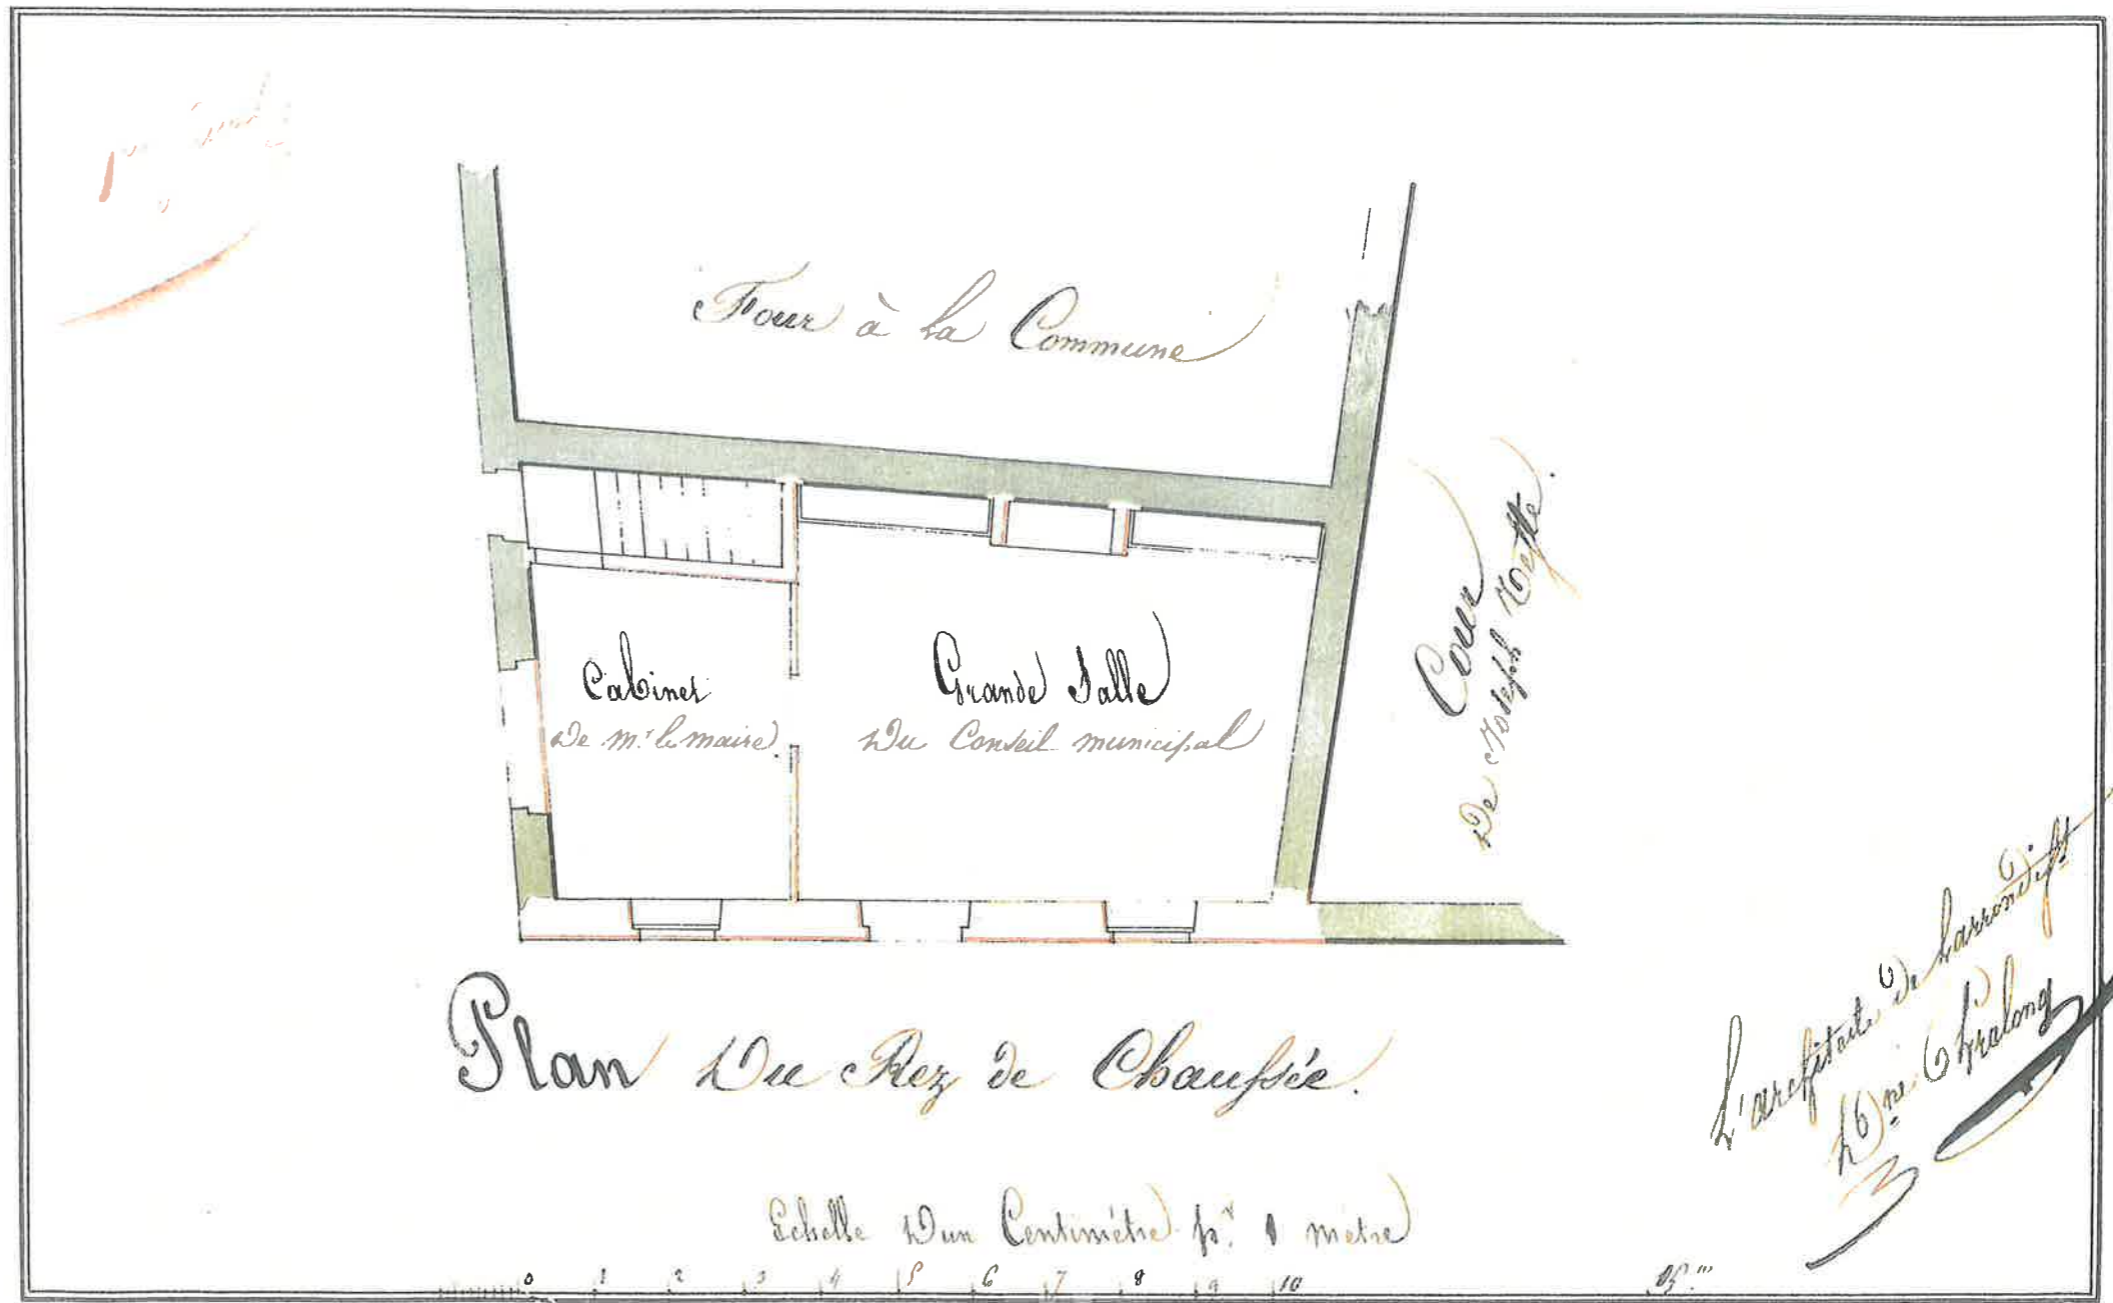 Four à la Commune
Cabinet
De mr le maire
Grande Salle
Du Conseil municipal
Cour
De Joseph
Plan Du Rez de Chaussée.
Echelle D'un Centimètre pr. 1 mètre
0 1 2 3 4 5 6 7 8 9 10 15m
L'architecte de Larrondisst
Pralong